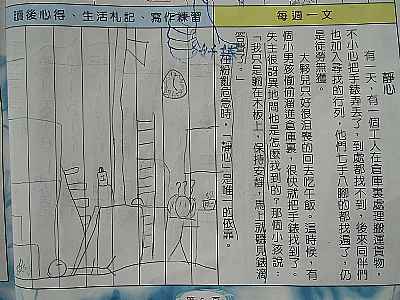 讀後心得、生活札記、寫作練習
每週一文
靜心
有一天，有一個工人在倉庫裏處理搬運貨物，
不小心把手錶弄丟了，到處都找不到，後來同伴們
也加入尋找的行列，他們七手八腳的都找遍了，仍
是徒勞無獲。
大夥兒只好很沮喪的回去吃午飯。這時候，有
個小男孩偷偷溜進倉庫裏，很快就把手錶找到了。
失主很訝異地問他是怎麼找到的？那個小孩說：
「我只是躺在木板上，保持安靜，馬上就聽見錶滴
答聲了。」
在紛亂危急時，「靜心」是唯一的依靠。